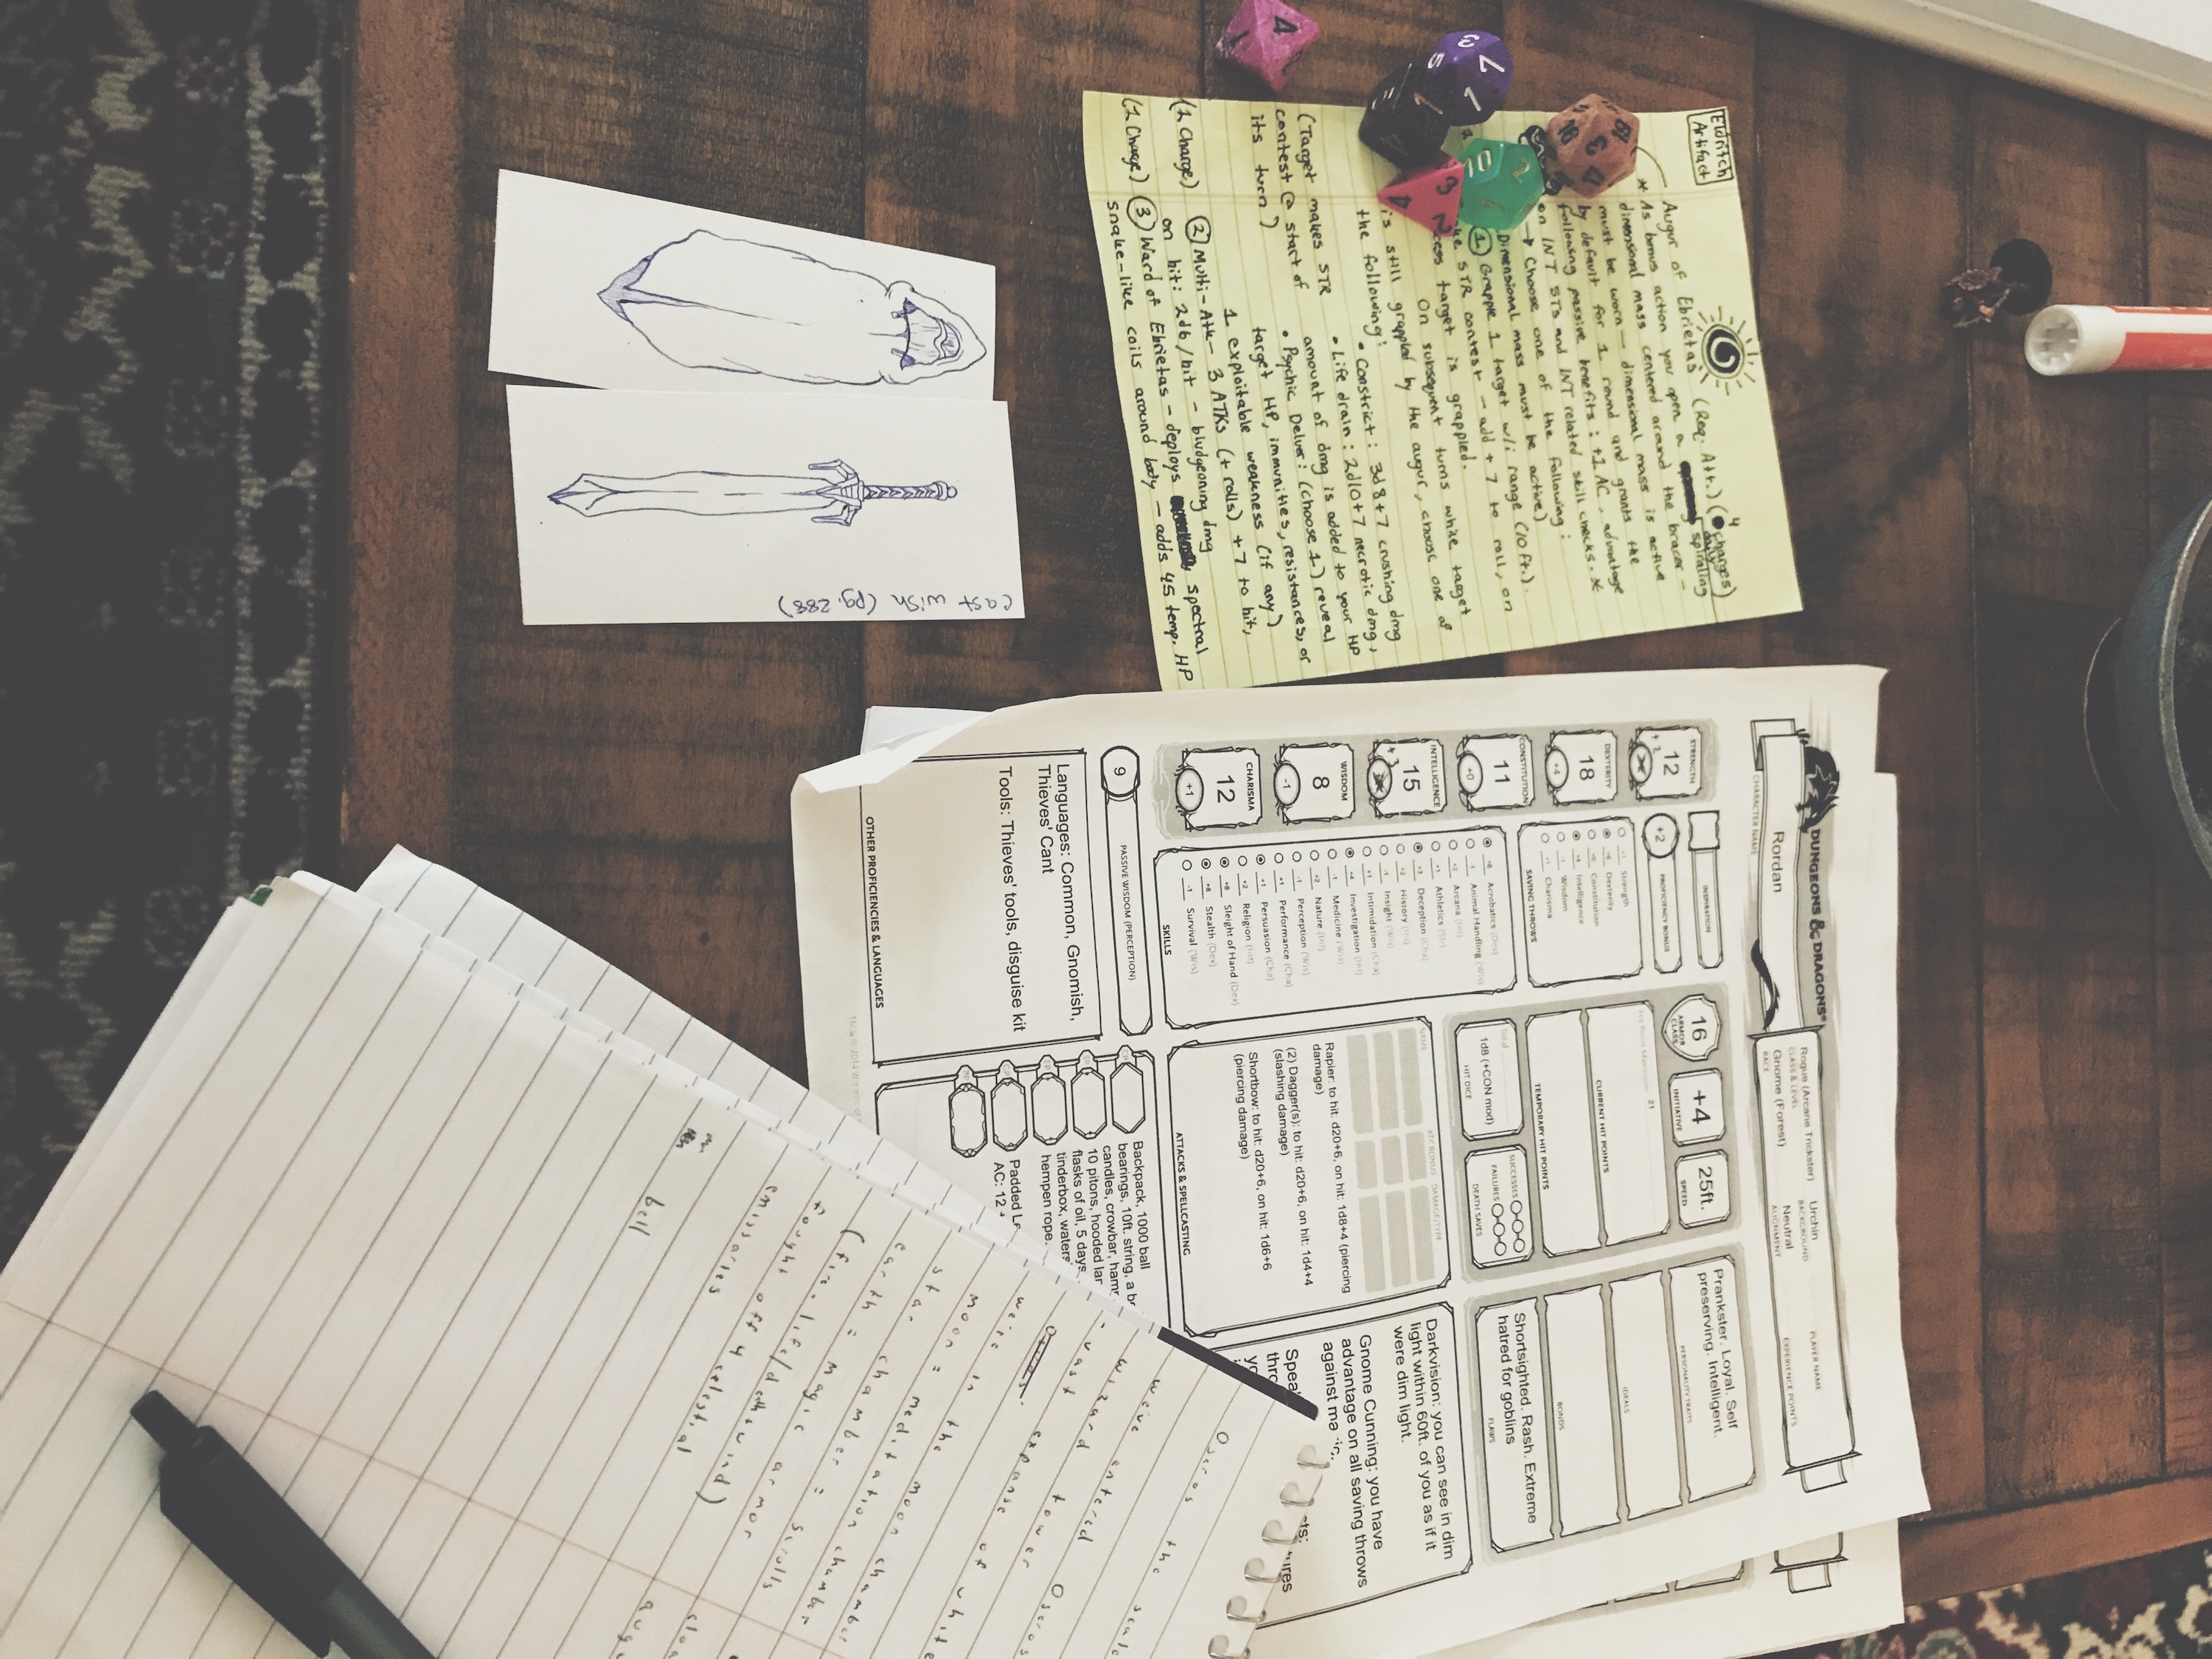 Eldritch
Artifact
Augur of Ebrietas (Req: Att.) (4 charges)
daily
* As bonus action you open a spiraling
dimensional mass centered around the bracer -
must be worn - dimensional mass is active
by default for 1 round and grants the
following passive benefits: +1 AC, advantage
on INT STs and INT related skill checks. *
→ Choose one of the following:
Dimensional mass must be active)
① Grapple 1 target w/i range (10 ft.).
STR contest - add +7 to roll, on
target is grappled.
On subsequent turns while target
is still grappled by the augur, choose one of
the following: • Constrict: 3d8+7 crushing dmg
• Life drain: 2d10+7 necrotic dmg,
amount of dmg is added to your HP
(Target makes STR
contest @ start of
its turn)
• Psychic Delver: (choose 1) reveal
target HP, immunities, resistances, or
1 exploitable weakness (if any)
(1 Charge) ② Multi-Atk - 3 ATKs (+ rolls) +7 to hit,
on hit: 2d6/hit - bludgeoning dmg
(1 Charge) ③ Ward of Ebrietas - deploys spectral
snake-like coils around body - adds 45 temp. HP
cast wish (pg. 288)
DUNGEONS & DRAGONS®
Rordan
CHARACTER NAME
Rogue (Arcane Trickster)
CLASS & LEVEL
Urchin
BACKGROUND
PLAYER NAME
Gnome (Forest)
RACE
Neutral
ALIGNMENT
EXPERIENCE POINTS
STRENGTH
12
+2
DEXTERITY
18
+4
CONSTITUTION
11
+0
INTELLIGENCE
15
+3
WISDOM
8
-1
CHARISMA
12
+1
INSPIRATION
+2
PROFICIENCY BONUS
+1 Strength
+6 Dexterity
+0 Constitution
+4 Intelligence
-1 Wisdom
+1 Charisma
SAVING THROWS
+6 Acrobatics (Dex)
-1 Animal Handling (Wis)
+2 Arcana (Int)
+1 Athletics (Str)
+3 Deception (Cha)
+2 History (Int)
-1 Insight (Wis)
+1 Intimidation (Cha)
+4 Investigation (Int)
-1 Medicine (Wis)
+2 Nature (Int)
-1 Perception (Wis)
+1 Performance (Cha)
+1 Persuasion (Cha)
+2 Religion (Int)
+8 Sleight of Hand (Dex)
+8 Stealth (Dex)
-1 Survival (Wis)
SKILLS
9
PASSIVE WISDOM (PERCEPTION)
Languages: Common, Gnomish,
Thieves' Cant
Tools: Thieves' tools, disguise kit
OTHER PROFICIENCIES & LANGUAGES
16
ARMOR
CLASS
+4
INITIATIVE
25ft.
SPEED
Hit Point Maximum 21
CURRENT HIT POINTS
TEMPORARY HIT POINTS
Total
1d8 (+CON mod)
HIT DICE
SUCCESSES
FAILURES
DEATH SAVES
NAME
ATK BONUS
DAMAGE/TYPE
Rapier: to hit: d20+6, on hit: 1d8+4 (piercing
damage)
(2) Dagger(s): to hit: d20+6, on hit: 1d4+4
(slashing damage)
Shortbow: to hit: d20+6, on hit: 1d6+6
(piercing damage)
ATTACKS & SPELLCASTING
Backpack, 1000 ball
bearings, 10ft. string, a be
candles, crowbar, hamr
10 pitons, hooded lar
flasks of oil, 5 days
tinderbox, waters
hempen rope.
Padded Le
AC: 12 +
Prankster. Loyal. Self
preserving. Intelligent.
PERSONALITY TRAITS
IDEALS
BONDS
Shortsighted. Rash. Extreme
hatred for goblins
FLAWS
Darkvision: you can see in dim
light within 60ft. of you as if it
were dim light.
Gnome Cunning: you have
advantage on all saving throws
against magic.
Speak
Oseros the scale
weive entered
wizard tower Oseros
- vast expanse of white
weive
moon in the moon chamber
star = meditation chamber
earth chamber = scrolls
(fire = magic armor
life/death & wind)
fought off 4 celestial
emissaries
bell